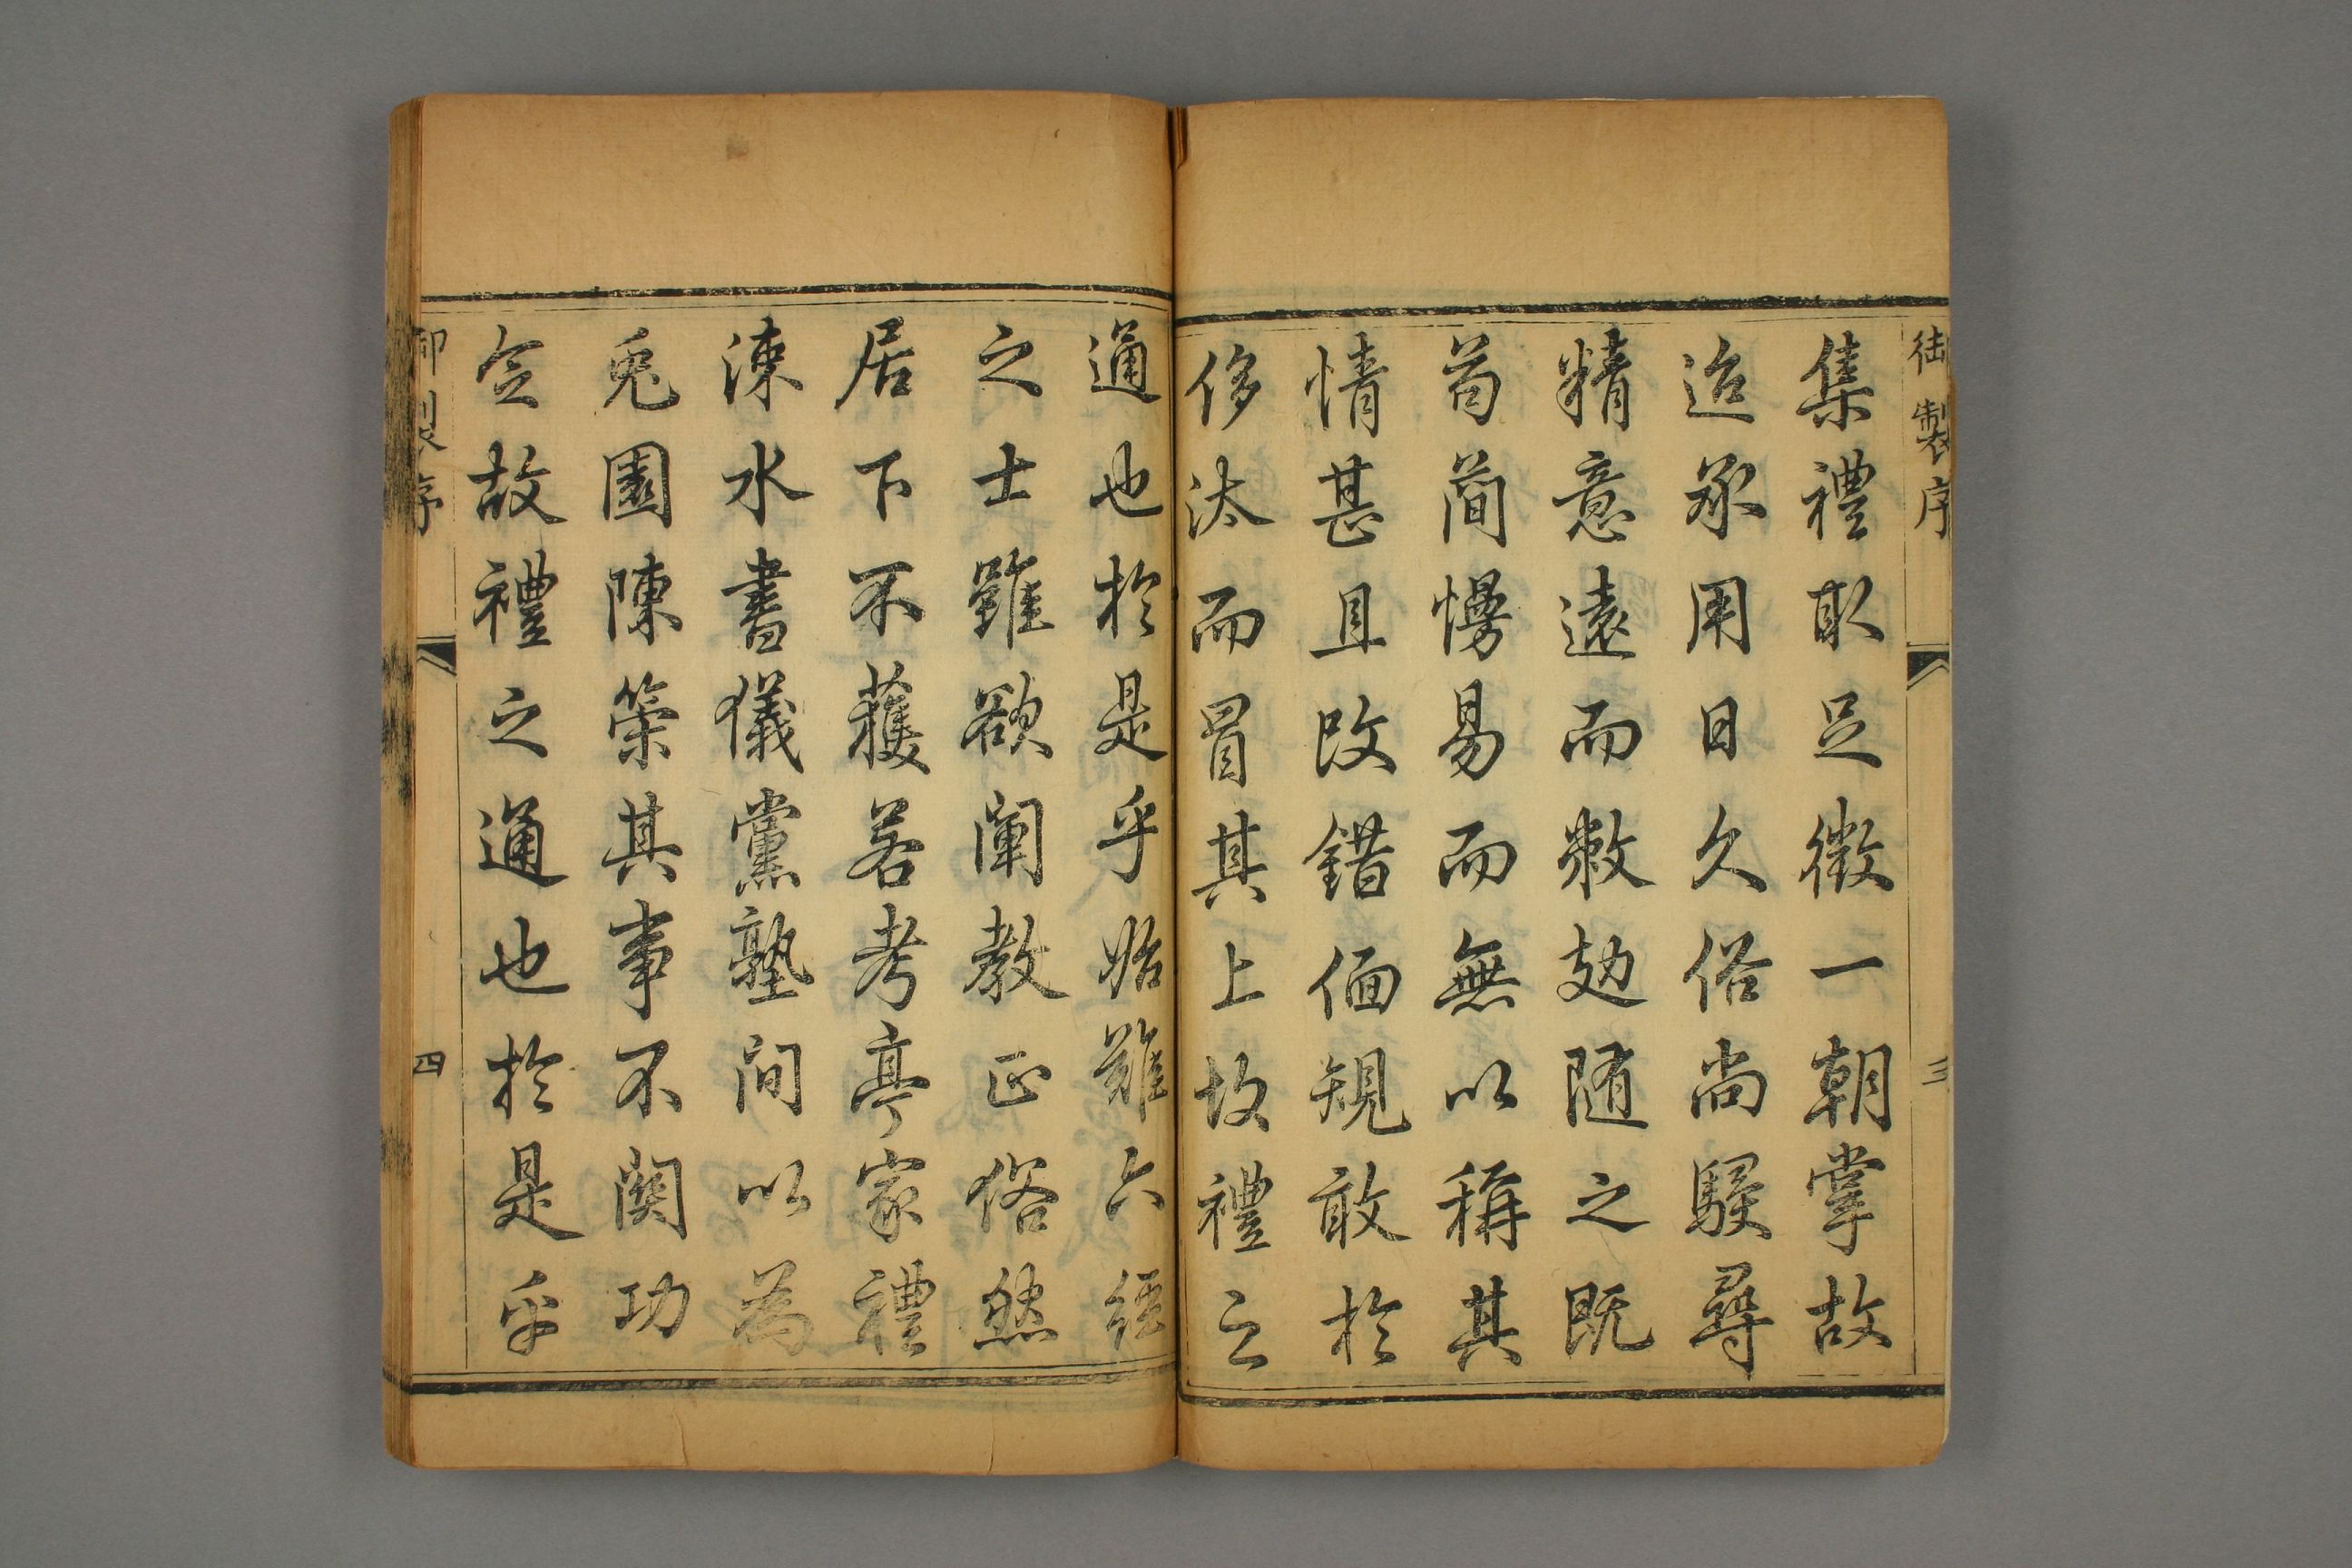 御製序
三
集禮取足徵一朝掌故
迨承用日久俗尚駸尋
精意遠而敝攰随之既
苟簡慢易而無以稱其
情甚且改錯偭規敢於
侈汰而冒其上故禮之
通也於是乎始難六經
之士雖欲闡教正俗然
居下不獲若考亭家禮
涑水書儀黨塾間以為
兎園陳策其事不関功
令故禮之通也於是乎
御製序
四